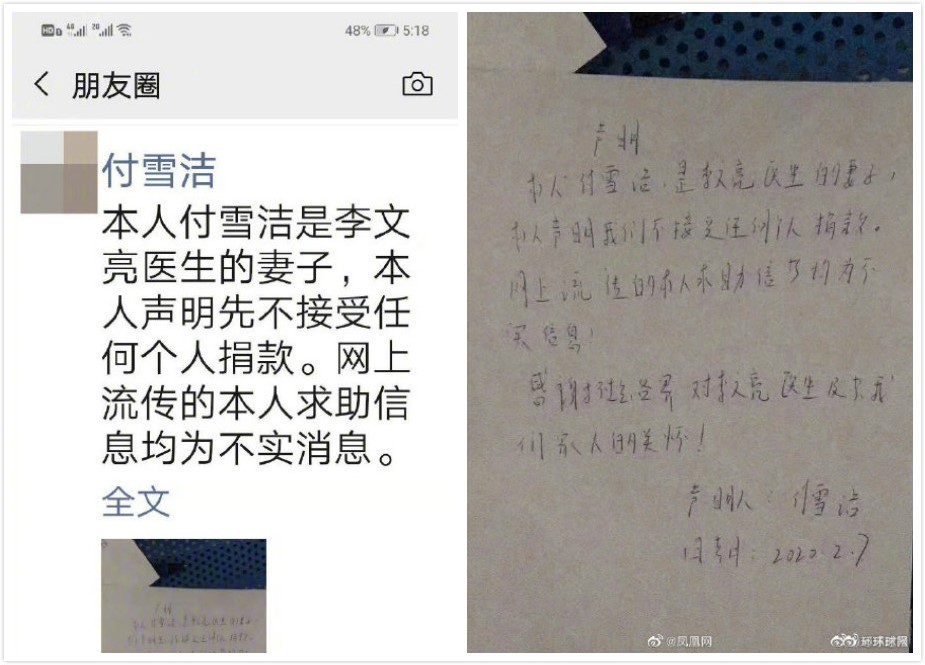 48% 5:18
朋友圈
付雪洁
本人付雪洁是李文
亮医生的妻子，本
人声明先不接受任
何个人捐款。网上
流传的本人求助信
息均为不实消息。
全文
声明
本人付雪洁是李文亮医生的妻子，
本人声明我们不接受任何个人捐款。
网上流传的本人求助信均为不
实信息！
感谢社会各界对李文亮医生及我
们家人的关怀！
声明人：付雪洁
日期：2020.2.7
@凤凰网
环球网